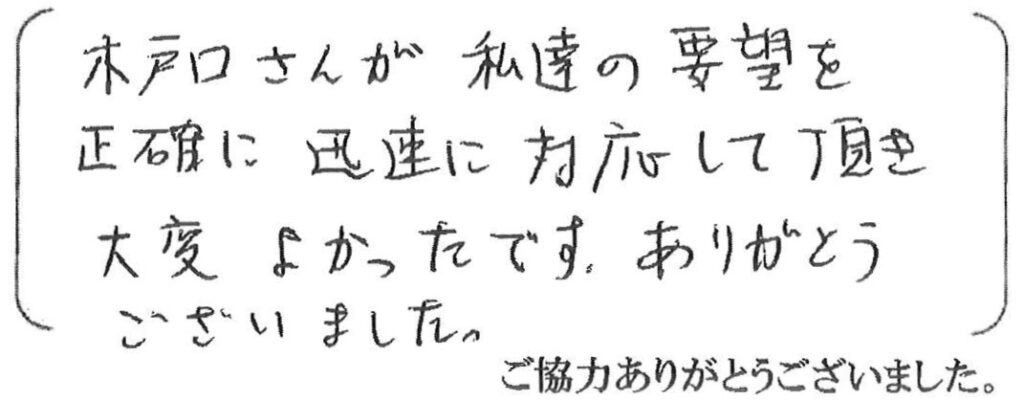 木戸口さんが 私達の 要望を
正確に 迅速に 対応して 頂き
大変 よかったです. ありがとう
ございました。
ご協力ありがとうございました。